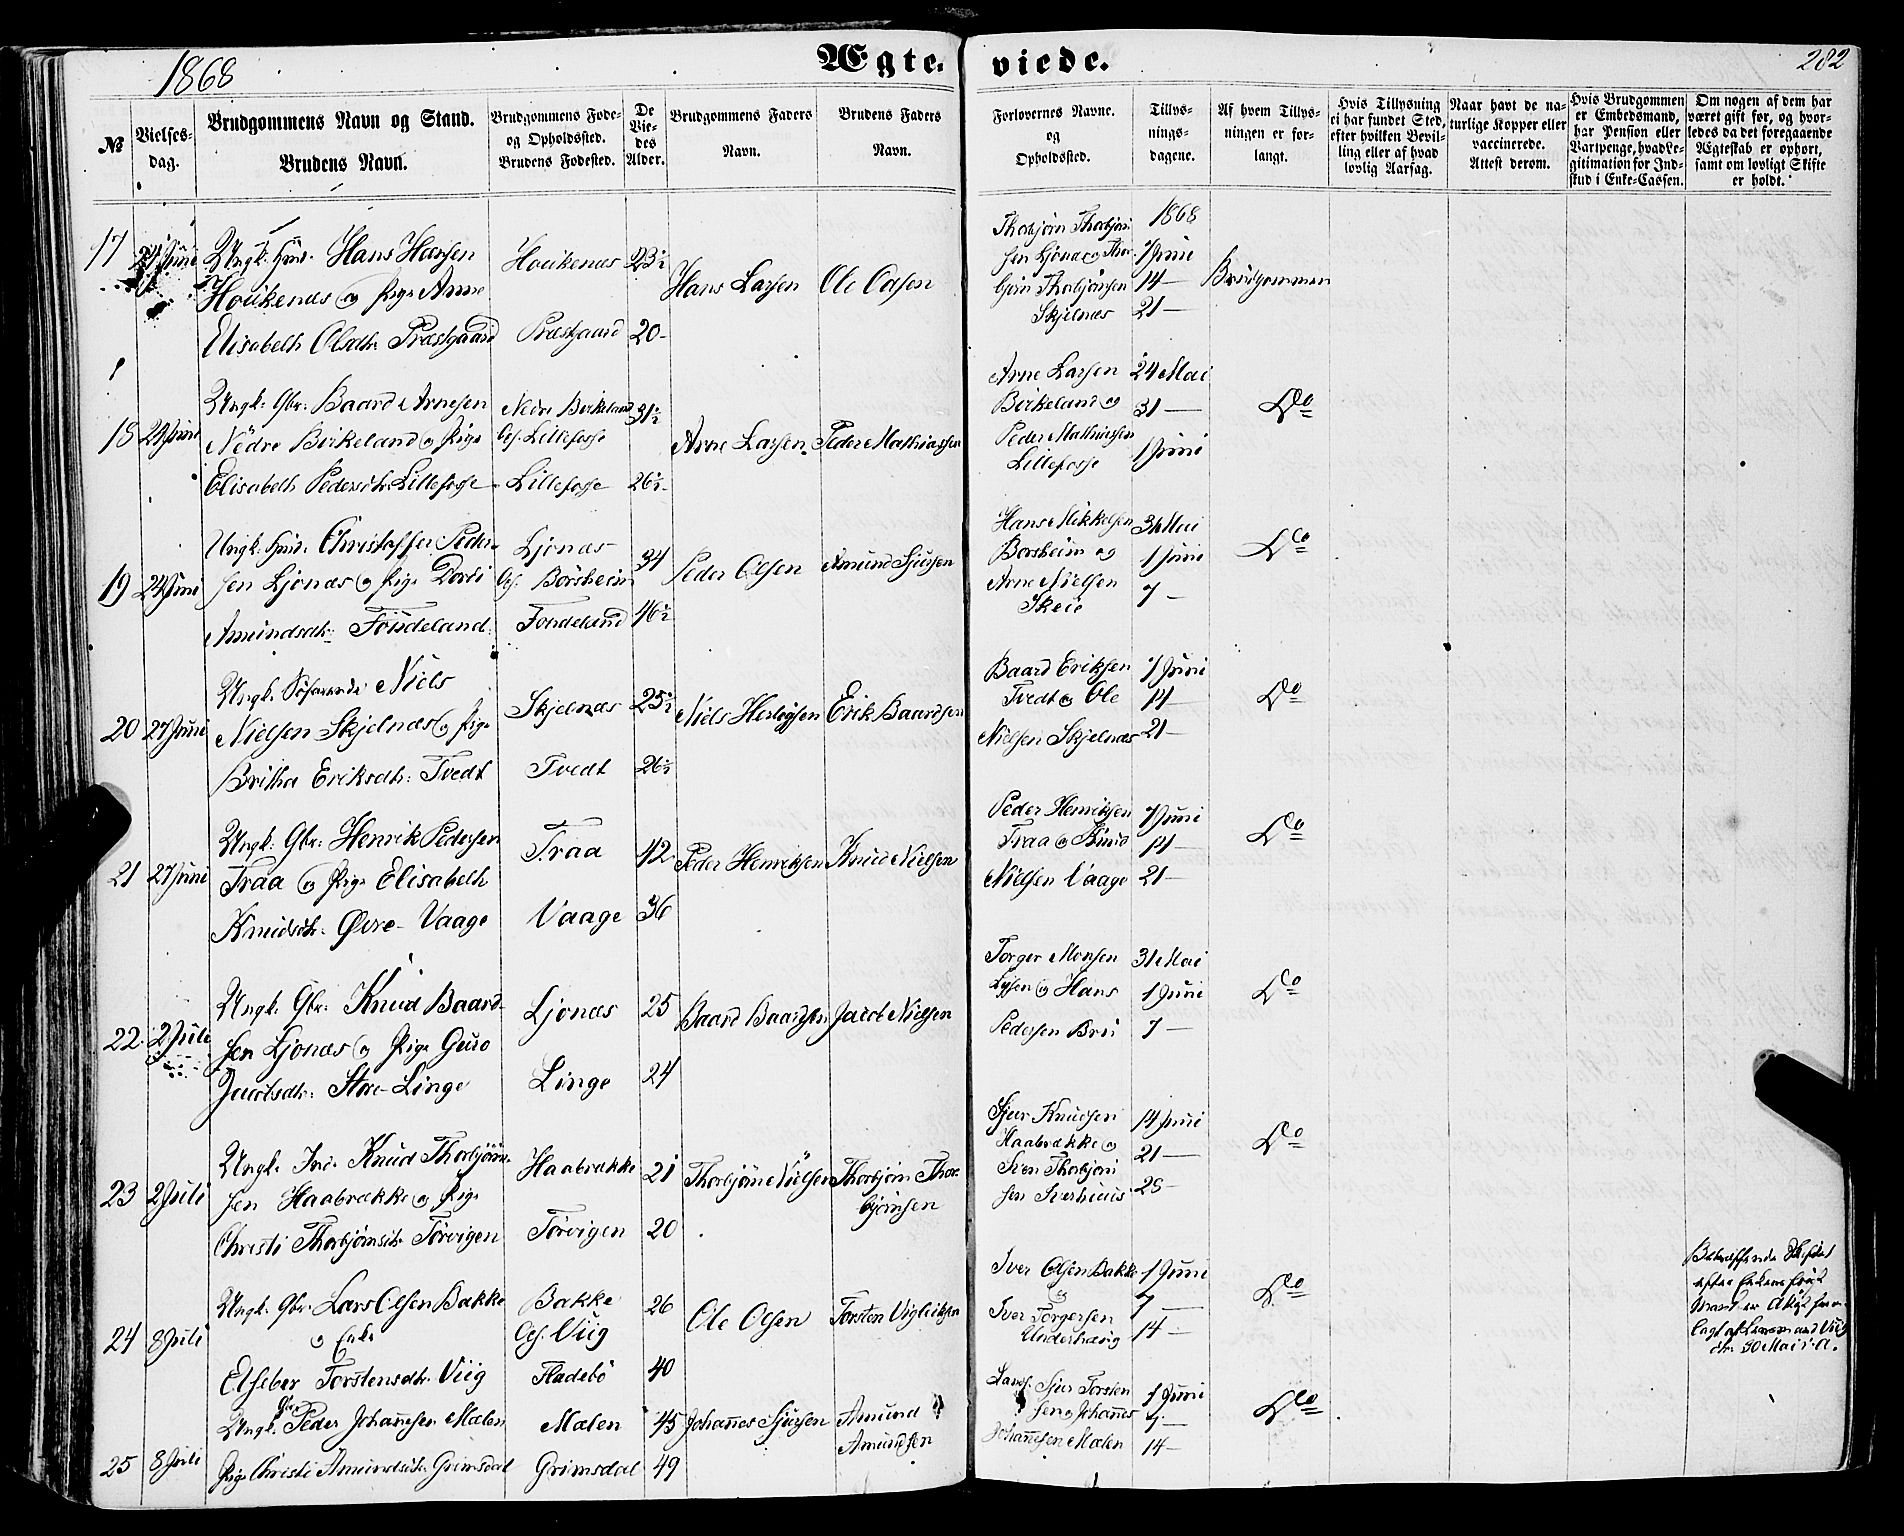 1868
Ægte.
viede.
282
№
Vielses-
dag.
Brudgommens Navn og Stand.
Brudens Navn.
Brudgommens Føde-
og Opholdssted.
Brudens Fødested.
De
Vie-
des
Alder.
Brudgommens Faders
Navn.
Brudens Faders
Navn.
Forlovernes Navne.
og
Opholdssted.
Tillys-
nings-
dagene.
Af hvem Tillys-
ningen er for-
langt.
Hvis Tillysning
ei har fundet Sted,
efter hvilken Bevil-
ling eller af hvad
lovlig Aarsag.
Naar havt de na-
turlige Kopper eller
vaccinerede.
Attest derom.
Hvis Brudgommen
er Embedsmand,
har Pension eller
Vartpenge, hvad Le-
gitimation for Ind-
skud i Enke-Cassen.
Om nogen af dem har
været gift før, og hvor-
ledes da det foregaaende
Ægteskab er ophørt,
samt om lovligt Skifte
er holdt.
17
21 Juni
Ungk. Hans Hansen
Houkenæs og Pige Anne
Elisabeth Olsdtr. Præstgaard
Houkenæs
Præstgaard
23½
20
Hans Larsen
Ole Olsen
1868
Thorbjørn Thorbjørn
sen Ljonæs og Thor
bjørn Thorbjørnsen
Skjelnæs
7 Juni
14 —
21 —
Brudgommen
18
24 Juni
Ungk. Gbr. Baard Arnesen
Nedre Birkeland og Pige
Elisabeth Pedersdtr. Lillefosse
Nedre Birkeland
Op. Lillefosse
Lillefosse
31½
26½
Arne Larsen
Peder Mathiassen
Arne Larsen
Birkeland og
Peder Mathiassen
Lillefosse
24 Mai
31 —
1 Juni
Do
19
24 Juni
Ungk. Christoffer Peder-
sen Ljonæs og Pige Dordi
Amundsdtr. Tondeland
Ljonæs
Op. Borsheim
Tondeland
34
46½
Peder Olsen
Amund Sjursen
Hans Mikkelsen
Borsheim og
Arne Nielsen
Skeie
31 Mai
1 Juni
7 —
Do
20
27 Juni
Ungk. Søfarende Niels
Nielsen Skjelnæs og Pige
Britha Eriksdtr. Tvedt
Skjelnæs
Tvedt
25½
26½
Niels Herlogsen
Erik Baardsen
Baard Eriksen
Tvedt og Ole
Nielsen Skjelnæs
7 Juni
14 —
21 —
Do
21
27 Juni
Ungk. Gbr. Henrik Pedersen
Traa og Pige Elisabeth
Knudsdtr. Øvre-Vaage
Traa
Vaage
42
36
Peder Henriksen
Knud Nielsen
Peder Henriksen
Traa og Knud
Nielsen Vaage
7 Juni
14 —
21 —
Do
22
2 Juli
Ungk. Gbr. Knud Baard-
sen Ljonæs og Pige Guro
Jacobsdtr. Store-Linge
Ljonæs
Linge
25
24
Baard Baardsen
Jacob Nielsen
Torger Monsen
Lyssen og Hans
Pedersen Bru
31 Mai
1 Juni
7 —
Do
23
2 Juli
Ungk. Ind. Knud Thorbjørn-
sen Haabrække og Pige
Christi Thorbjørnsdtr. Torvigen
Haabrække
Torvigen
21
20
Thorbjørn Nielsen
Thorbjørn Thor-
bjørnsen
Sjur Knudsen
Haabrække og
Sven Thorbjørn
sen
14 Juni
21 —
28 —
Do
24
8 Juli
Ungk. Gbr. Lars Olsen Bakke
og Enke
Elseber Torstensdtr. Viig
Bakke
Op. Viig
Fladebø
26
40
Ole Olsen
Torsten Vigleiksen
Iver Olsen Bakke
og
Iver Torgersen
Underhaug
1 Juni
7 —
14 —
Do
Betræffende Skiftet
efter Enkens første
Mand er Attest frem-
lagt af Lensmand Viig
dtr. 30 Mai d. A.
25
8 Juli
Ungk. Gbr. Peder Johannesen Mælen
Pige Christi Amundsdtr. Grimsdal
Mælen
Grimsdal
45
49
Johannes Sjursen
Amund
Amundsen
Lensm. Sjur Torsten
sen og Johannes
Johannesen Mælen
1 Juni
7 —
14 —
Do